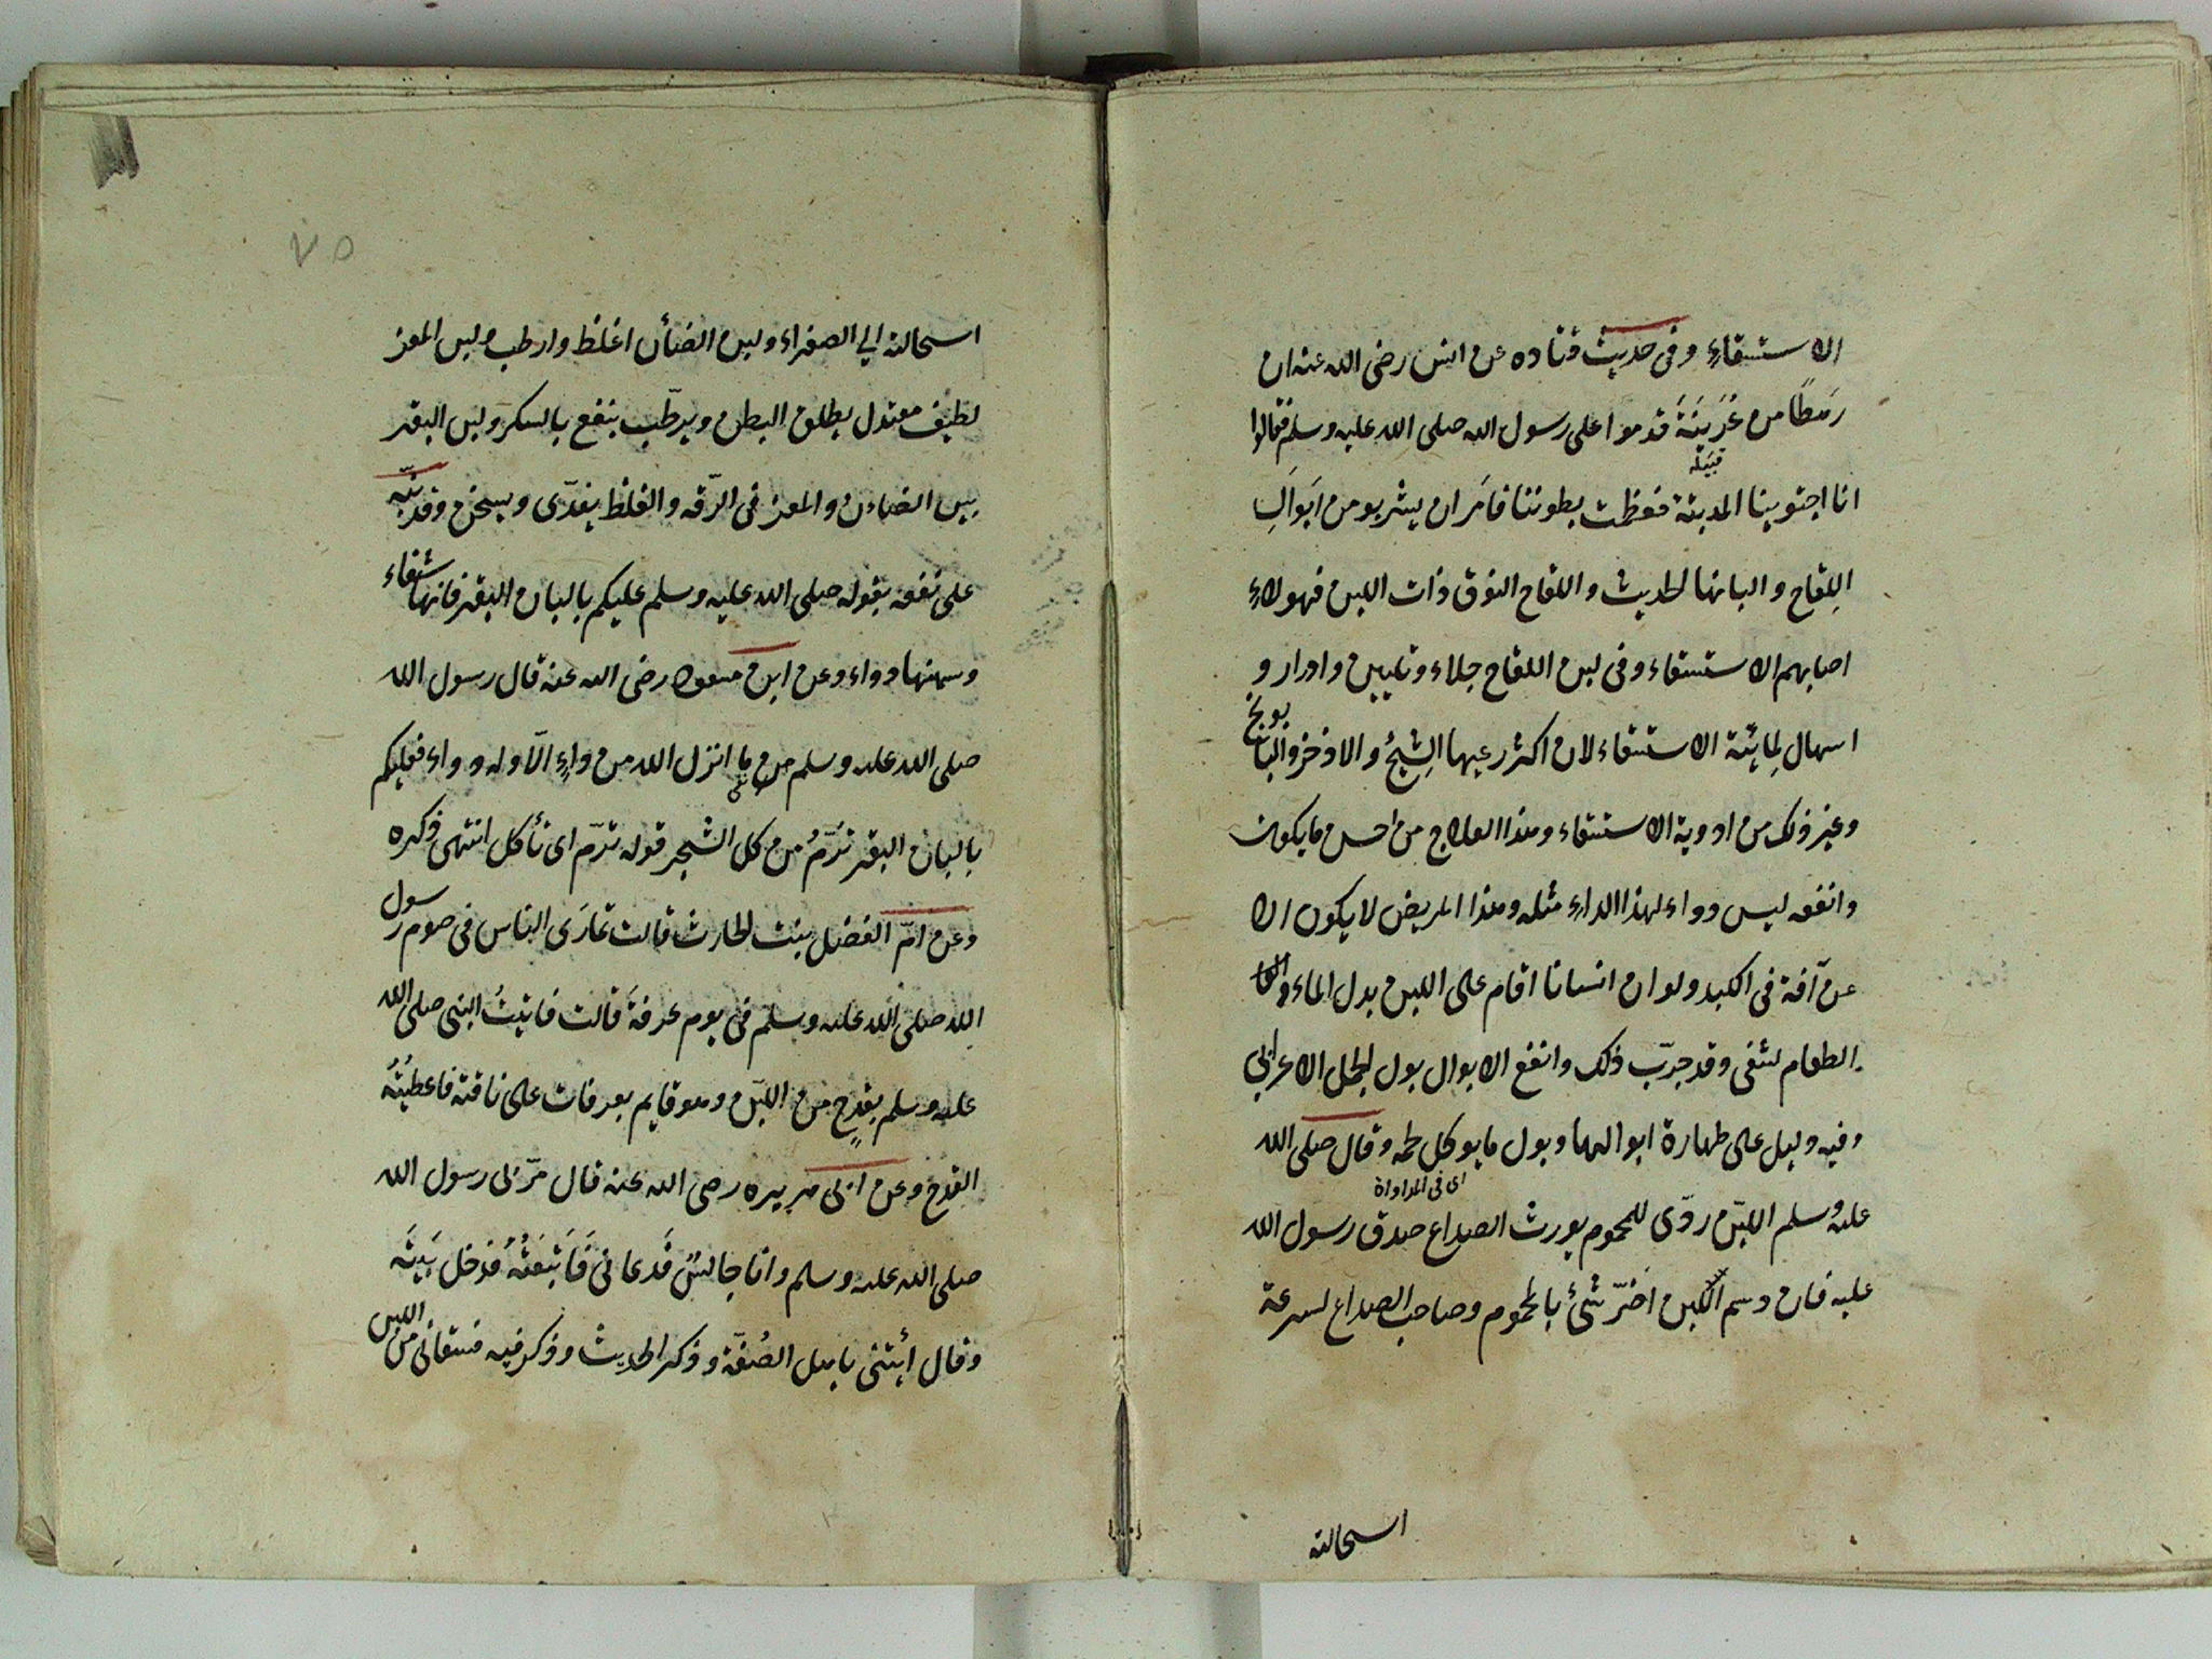 الاستسقاءِ وفى حديث قتاده عن انس رضى الله عنه ان
رَهطًا من عُرَينَةَ قدموا على رسول الله صلى الله عليه وسلم فقالوا
قبيلة
انا اجتوينا المدينة فعظمت بطوننا فامَر ان يشربو من ابَوالِ
اللِقاح والبانها الحديث واللقاح النوق ذات اللبن فهولاءِ
اصابهم الاستسقاء وفى لبن اللقاح جلاء وتليين وادرار و
اسهال لِمائيّة الاستسقاء لان اكثر رعيها الشِيحُ والاذخر والبابونج
وغير ذلك من ادوية الاستسقاء وهذا العلاج من احسن ما يكون
وانفعه ليس دواء لهذا الداءِ مثله وهذا المريض لا يكون الا
عن آفة فى الكبد ولو ان انسانا اقام على اللبن بدل الماء و
الطعام لشفى وقد جرّب ذلك وانفع الابوال بول الجمل الاعرابى
وفيه دليل على طهارة ابوالها وبول ما يوكل لحمه وقال صلى الله
اى فى المداواة
عليه وسلم اللبن ردّى للمحموم يورث الصداع صدق رسول الله
عليه فان دسم اللبن اضَرّ شئ بالمحموم وصاحب الصداع لسرعة
استحالته
استحالته الي الصفراء ولبن الضأن اغلظ وارطب ولبن المعز
لطيف معتدل يطلق البطن ويرطّب ينفع بالسكر ولبن البقر
بين الضاءن والمعز فى الرّقه والغلظ يغدّى ويسخن وقد نبّه
على نفعه بقوله صلى الله عليه وسلم عليكم بالبان البقر فانها شفاء
وسمنها دواء وعن ابن مسعود رضى الله عنه قال رسول الله
صلى الله عليه وسلم ما انزل الله من داءٍ الّا وله دواء فعليكم
بالبان البقر ترُمّ من كل الشجر قوله ترّم اى تأكل انتهى ذكره
وعن امّ الفضل بنت الحارث قالت تمارَى الناس فى صوم رسول
الله صلى الله عليه وسلم فى يوم عرفةَ قالت فاتيتُ النبى صلى الله
عليه وسلم بقدحٍ من اللبن وهو قايم بعرفات على ناقته فاعطيتُه
القدح وعن ابى هريره رضى الله عنه قال مرّ بى رسول الله
صلى الله عليه وسلم وانا جالسٌ فَدعانى فَاَتْبَعْتُهُ فدخل بَيتَه
وقال أيتنى باهل الصُفّة وذكر الحديث وذكر فيه فسقانى من اللبن